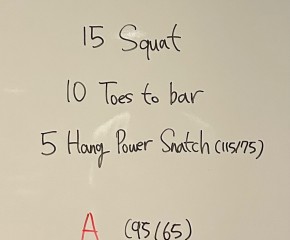 15 Squat
10 Toes to bar
5 Hang Power Snatch (115/75)
A (95/65)